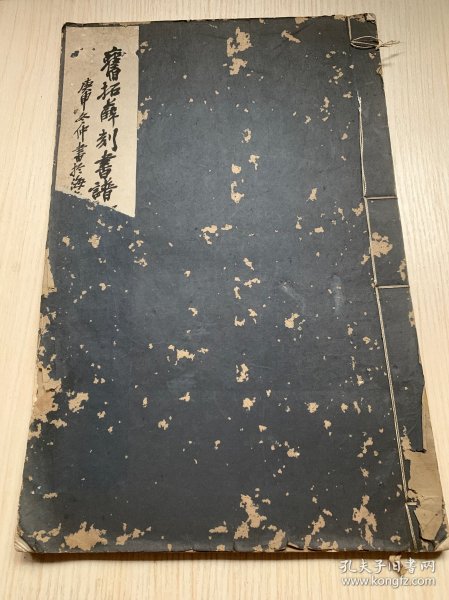 舊拓薛刻書譜
庚申冬仲書於海
孔夫子旧书网
www.kongfz.com